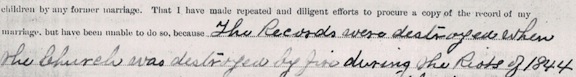 children by any former marriage. That I have made repeated and diligent efforts to procure a copy of the record of my
marriage, but have been unable to do so, because The Records were destroyed when
the Church was destroyed by fire during the Riots of 1844